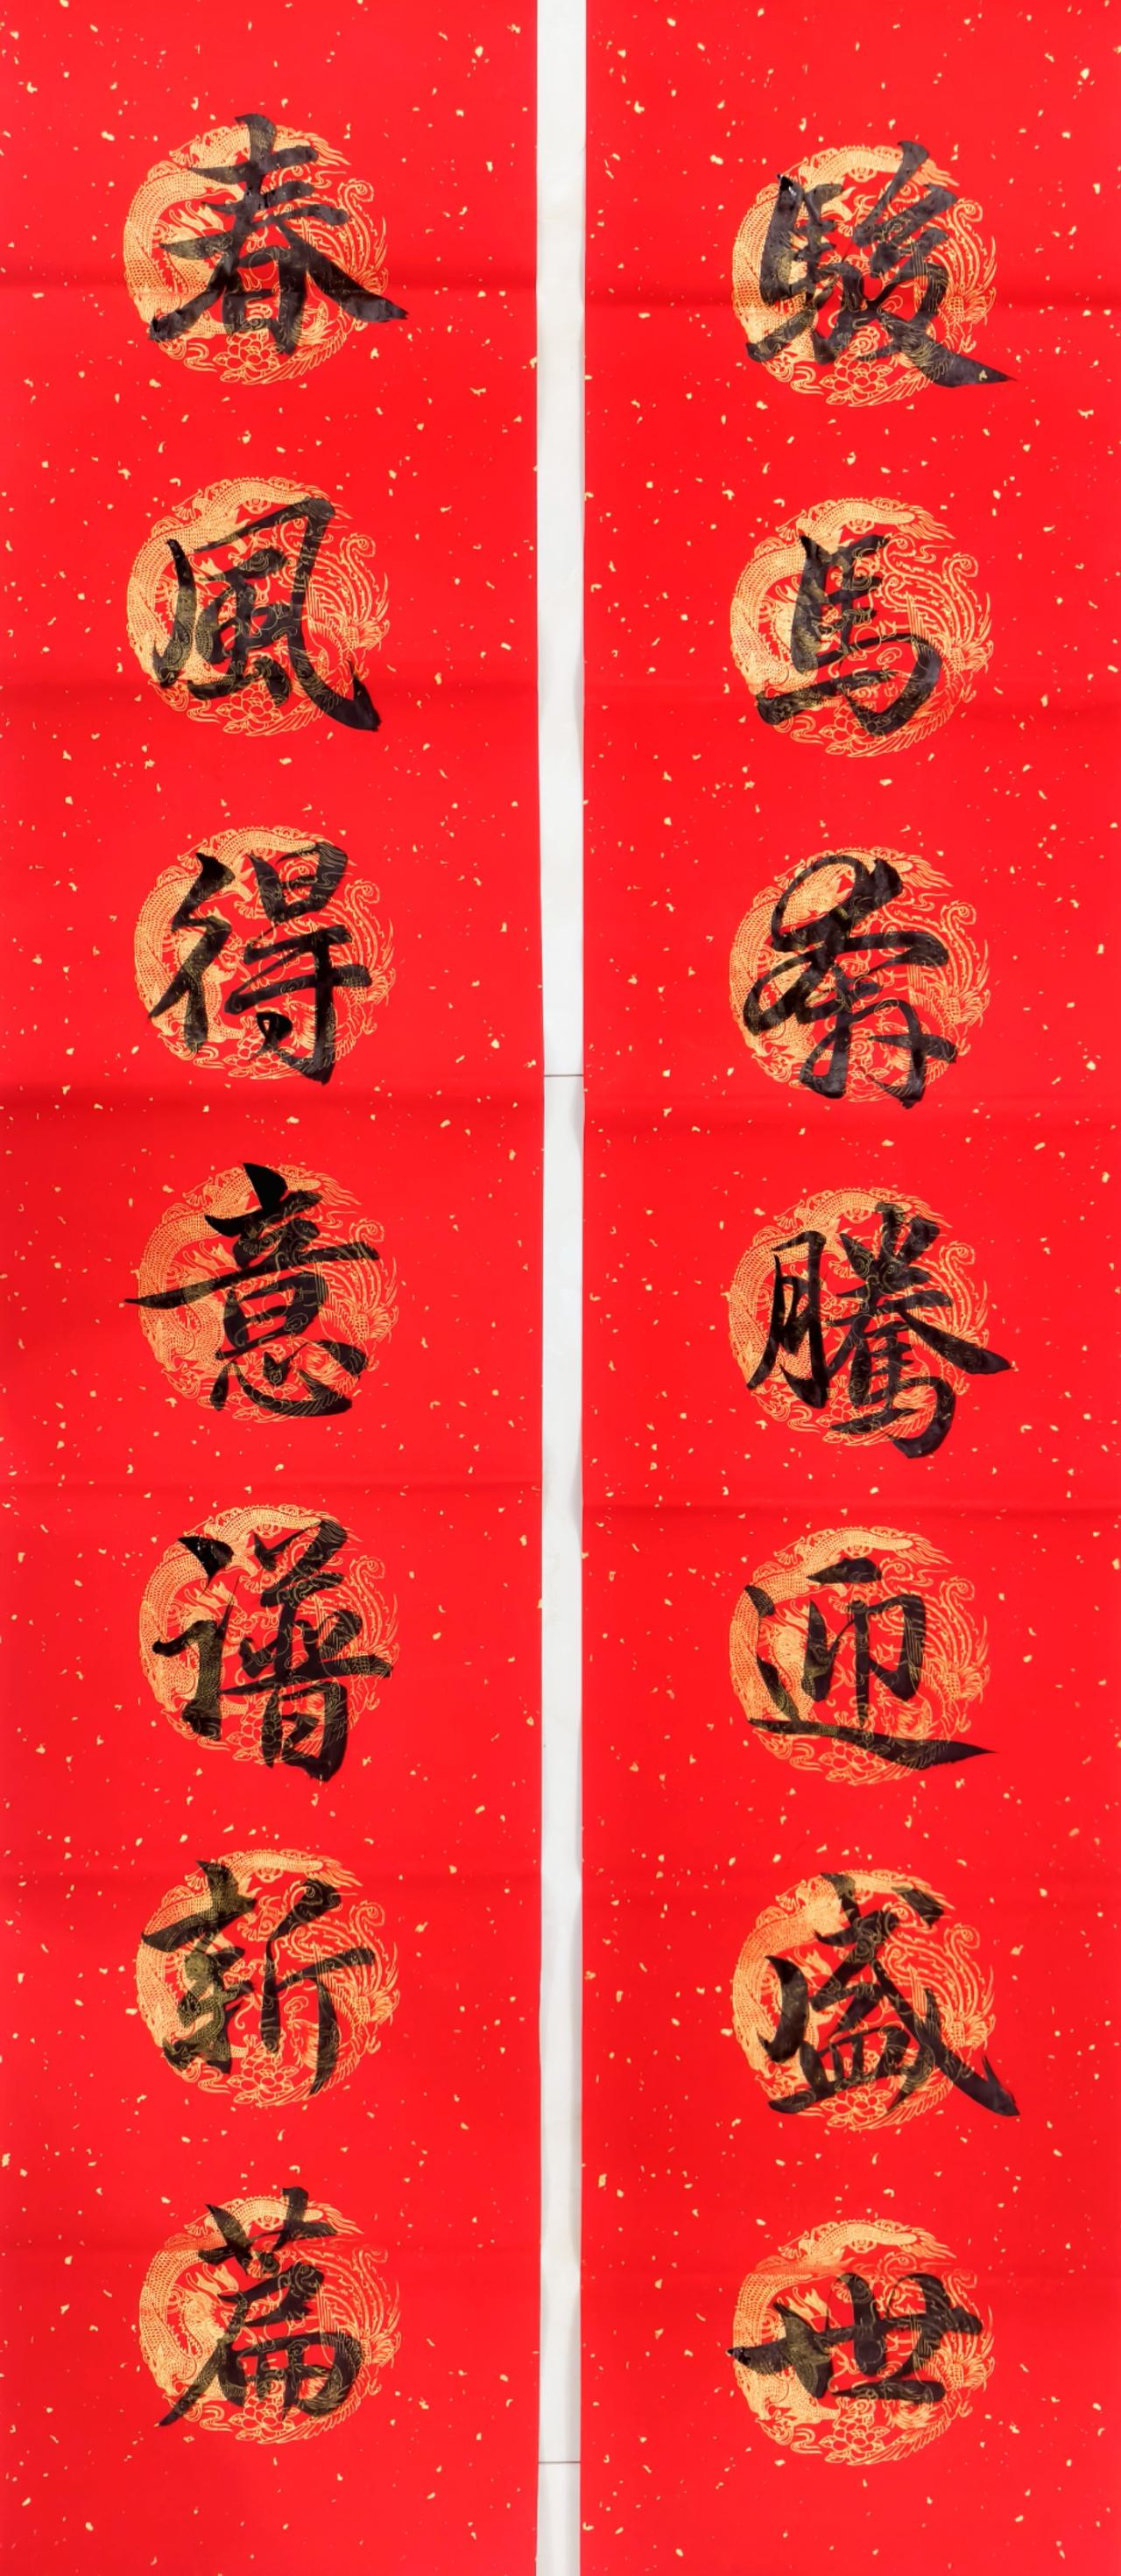 駿馬奔騰迎盛世
春風得意谱新篇